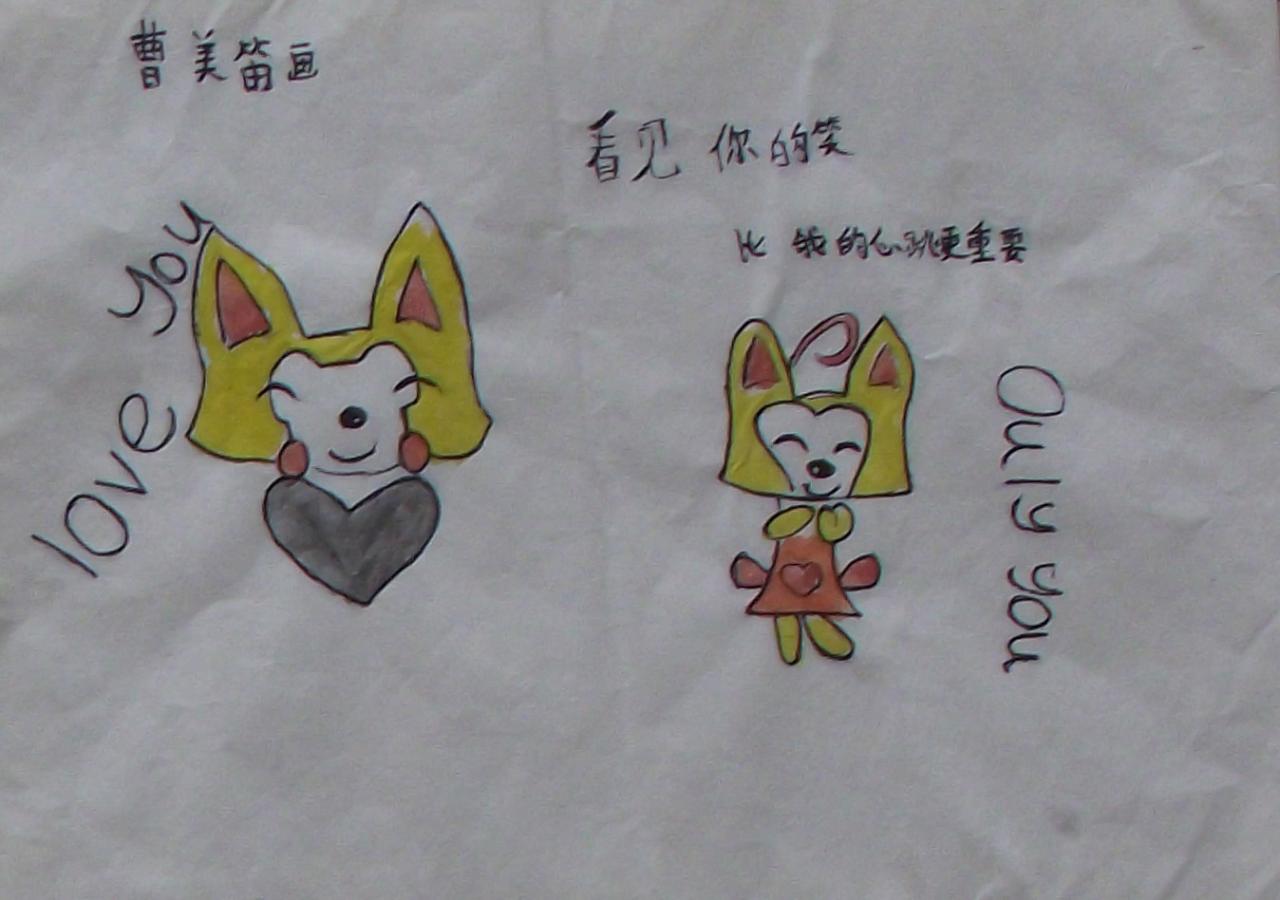 曹美笛画
看见你的笑
比我的心跳更重要
love you
Ouly you